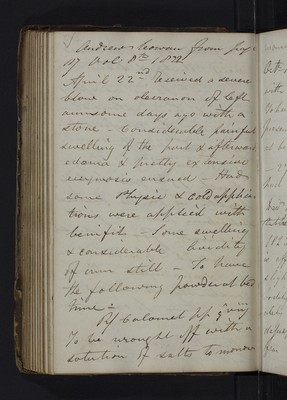 Andrew Cowan from page
17 Vol 8th 1822
April 22nd Received a severe
blow on olecranon of left
arm some days ago with a
stone - Considerable painful
swelling of the part & afterward
edema & pretty extensive
ecchymosis ensued - Had
some Physic & cold applica
tions were applied with
benifit - Some swelling
& considerable lividity
of arm still - To have
the following powder at bed
time -
Rx Calomel pp gr viij
To be wrought off with a
solution of salts to morrow